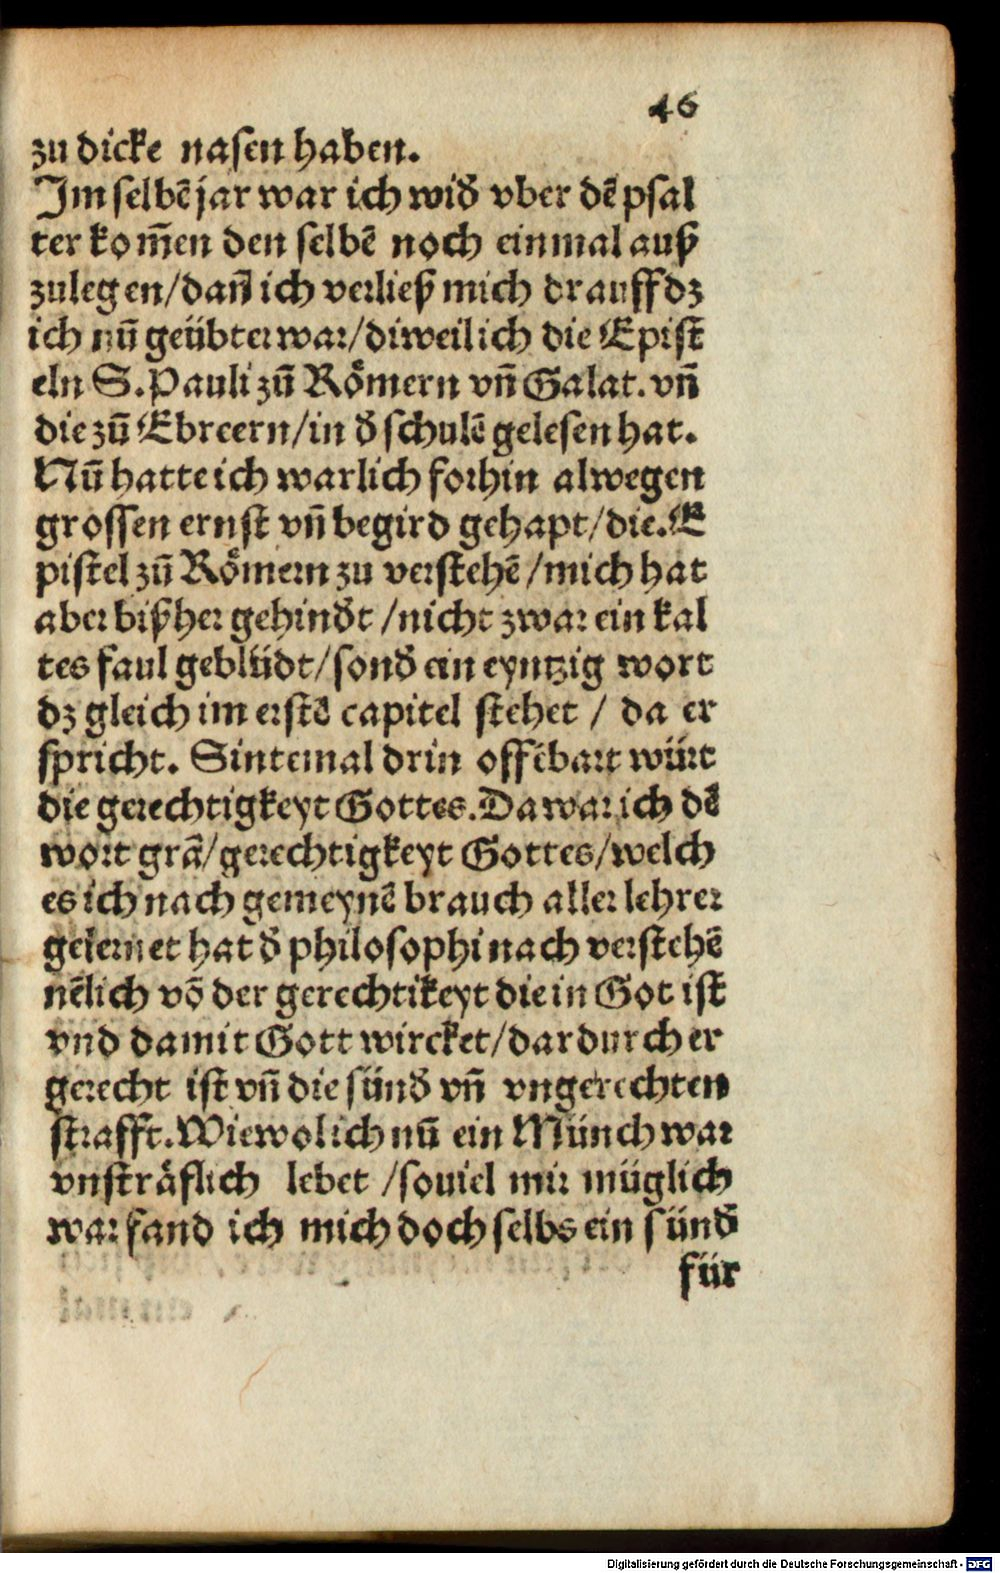 46
zu dicke nasen haben.
Im selbẽ jar war ich wid̉ vber dẽ psal
ter kom̃en den selbẽ noch einmal auß
zulegen/dañ ich verließ mich drauff dz
ich nũ geübter war/diweil ich die Epist̃
eln S. Pauli zũ Roͤmern vñ Galat. vñ
die zũ Ebreern/in d̉ schulẽ gelesen hat.
Nũ hatte ich warlich forhin alwegen
grossen ernst vñ begird gehapt/die. E
pistel zũ Roͤmern zu verstehẽ /mich hat
aber bißher gehind̉t /nicht zwar ein kal
tes faul geblüdt/sond̉ ein eyntzig wort
dz gleich im erstẽ capitel stehet / da er
spricht. Sintemal drin offẽbart würt
die gerechtigkeyt Gottes. Da war ich dẽ
wort grã/gerechtigkeyt Gottes/welch
es ich nach gemeynẽ brauch aller lehrer
gelernet hat d̉ philosophi nach verstehẽ
nẽlich võ der gerechtikeyt die in Got ist
vnd damit Gott wircket/dardurch er
gerecht ist vñ die sünd̉ vñ vngerechten
strafft. Wiewol ich nũ ein Münch war
vnstraͤflich lebet /souiel mir müglich
war fand ich mich doch selbs ein sünd̉
für
Digitalisierung gefördert durch die Deutsche Forschungsgemeinschaft - DFG